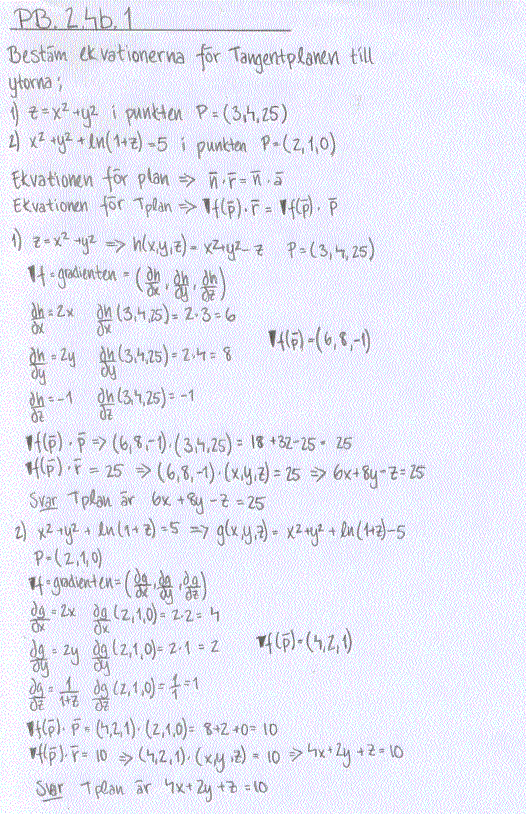 PB. 2.4b.1
Bestäm ekvationerna för Tangentplanen till
ytorna;
1) z = x² + y² i punkten P = (3,4,25)
2) x² + y² + ln(1+z) = 5 i punkten P = (2,1,0)
Ekvationen för plan ⇒ n̄·r̄ = n̄·ā
Ekvationen för Tplan ⇒ ∇f(p̄)·r̄ = ∇f(p̄)·p̄
1) z = x² + y² ⇒ h(x,y,z) = x² + y² - z P = (3,4,25)
∇f = gradienten = (∂h/∂x, ∂h/∂y, ∂h/∂z)
∂h/∂x = 2x ∂h/∂x (3,4,25) = 2·3 = 6
∇f(p̄) = (6,8,-1)
∂h/∂y = 2y ∂h/∂y (3,4,25) = 2·4 = 8
∂h/∂z = -1 ∂h/∂z (3,4,25) = -1
∇f(p̄)·p̄ ⇒ (6,8,-1)·(3,4,25) = 18 + 32 - 25 = 25
∇f(p̄)·r̄ = 25 ⇒ (6,8,-1)·(x,y,z) = 25 ⇒ 6x + 8y - z = 25
Svar Tplan är 6x + 8y - z = 25
2) x² + y² + ln(1+z) = 5 ⇒ g(x,y,z) = x² + y² + ln(1+z) - 5
P = (2,1,0)
∇f = gradienten = (∂g/∂x, ∂g/∂y, ∂g/∂z)
∂g/∂x = 2x ∂g/∂x (2,1,0) = 2·2 = 4
∂g/∂y = 2y ∂g/∂y (2,1,0) = 2·1 = 2 ∇f(p̄) = (4,2,1)
∂g/∂z = 1/(1+z) ∂g/∂z (2,1,0) = 1/1 = 1
∇f(p̄)·p̄ = (4,2,1)·(2,1,0) = 8+2+0 = 10
∇f(p̄)·r̄ = 10 ⇒ (4,2,1)·(x,y,z) = 10 ⇒ 4x + 2y + z = 10
Svar Tplan är 4x + 2y + z = 10